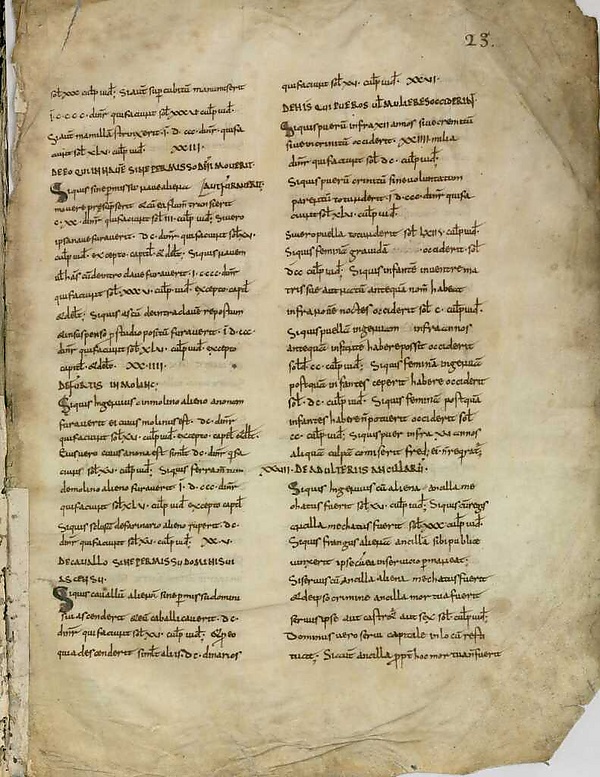 23.
sol xxx culp iud; Si aut sup cubitu manum strinxerit
i·c·c·c·c· dinr qui faciunt sol xxxv culp iud·
Si aut mamilla strinxerit· i· d· ccc· dinr qui fa
ciunt sol xlv· culp iud· XXIII·
DE EO QUI NAVE SINE PERMISSO DNI MOVERIT·
Si quis sine pmissu nave aliena AUT FURAVERIT·
movere presupserit & cu ea flum transierit
c·xx· dinr qui faciunt sol iii· culp iud; Si vero
ipsa nave furaverit· d·c· dinr qui faciunt sol xv·
culp iud· excepto· capit & delt; Si quis navem
de intro clave furaverit· i· cccc· dinr
qui faciunt sol xxxv· culp iud· excepto· capit
& delt; Si quis asca deintra clave repositum
& in suspenso p studio positu furaverit· i· d· ccc·
dinr qui faciunt sol xlv· culp iud· excepto
capit & delt· XXIIII·
DE FURTIS IN MOLINO;
Si quis ingenuus in molino alieno annonam
furaverit ei cuius molinus est· dc· dinr
qui faciunt sol xv· culp iud· excepto· capit & delt·
Ei uero cuius anona est simil dc· dinr qi fa
ciunt sol xv· culp iud; Si quis ferramentum
de molino alieno furaverit i· d· ccc· dinr
qui faciunt sol xlv· culp iud· excepto capit
Si quis sclusa de farinario alieno ruperit· dc·
dinr qui faciunt sol xv· culp iud; XXV·
DE CAVALLO SINE PERMISSU DOMINI SUI
ASCENSU·
Si quis cavallu alienu sine pmissu domini
sui ascenderit & eu caballicaverit· dc·
dinr qui faciunt sol xv· culp iud; & p eo
quia descenderit simil alios dc· dinarios
qui faciunt sol xv· culp iud· XXVI·
DE HIS QUI PUEROS VL MULIERES OCCIDERINT·
Si quis pueru infra xii annos sive crenitum
sive incrinitu occiderit· xxiiii milia
dinr qui faciunt sol dc· culp iud;
Si quis pueru crinitu sine voluntatem
parentu totunderit· i d· ccc· dinr qui fa
ciunt sol xlv· culp iud·
Si vero puella totunderit sol lxii s· culp iud·
Si quis femina gravida occiderit sol
dcc culp iud; Si quis infante in ventre ma
tris sue aut natu antequa nom habeat
infra none noctes occiderit sol c· culp iud·
Si quis puella ingenuam infra annos
antequa infante habere possit occiderit
sol cc· culp iud; Si quis femina ingenua
postqua infantes ceperit habere occiderit
sol· dc· culp iud; Si quis femina postqua
infantes habere n potuerit occiderit sol
cc· culp iud; Si quis puer infra xii annos
aliqua culpa comiserit fred; ei n reqrat;
XXVII· DE ADULTERIIS ANCILLARU·
Si quis ingenuus cu aliena ancilla me
chatus fuerit sol xv· culp iud; Si quis cu regis
ancilla mechatus fuerit sol xxx culp iud·
Si quis francus aliena ancilla sibi publice
iunxerit ipse cu ea in servicio pmaneat;
Si servus cu ancilla aliena mechatus fuerit
& de ipso crimine ancilla mortua fuerit
servus ipse aut castret aut sex sol culp iud;
Dominus vero servi capitale in locu resti
tuat; Si aut ancilla ppt hoc mortua n fuerit